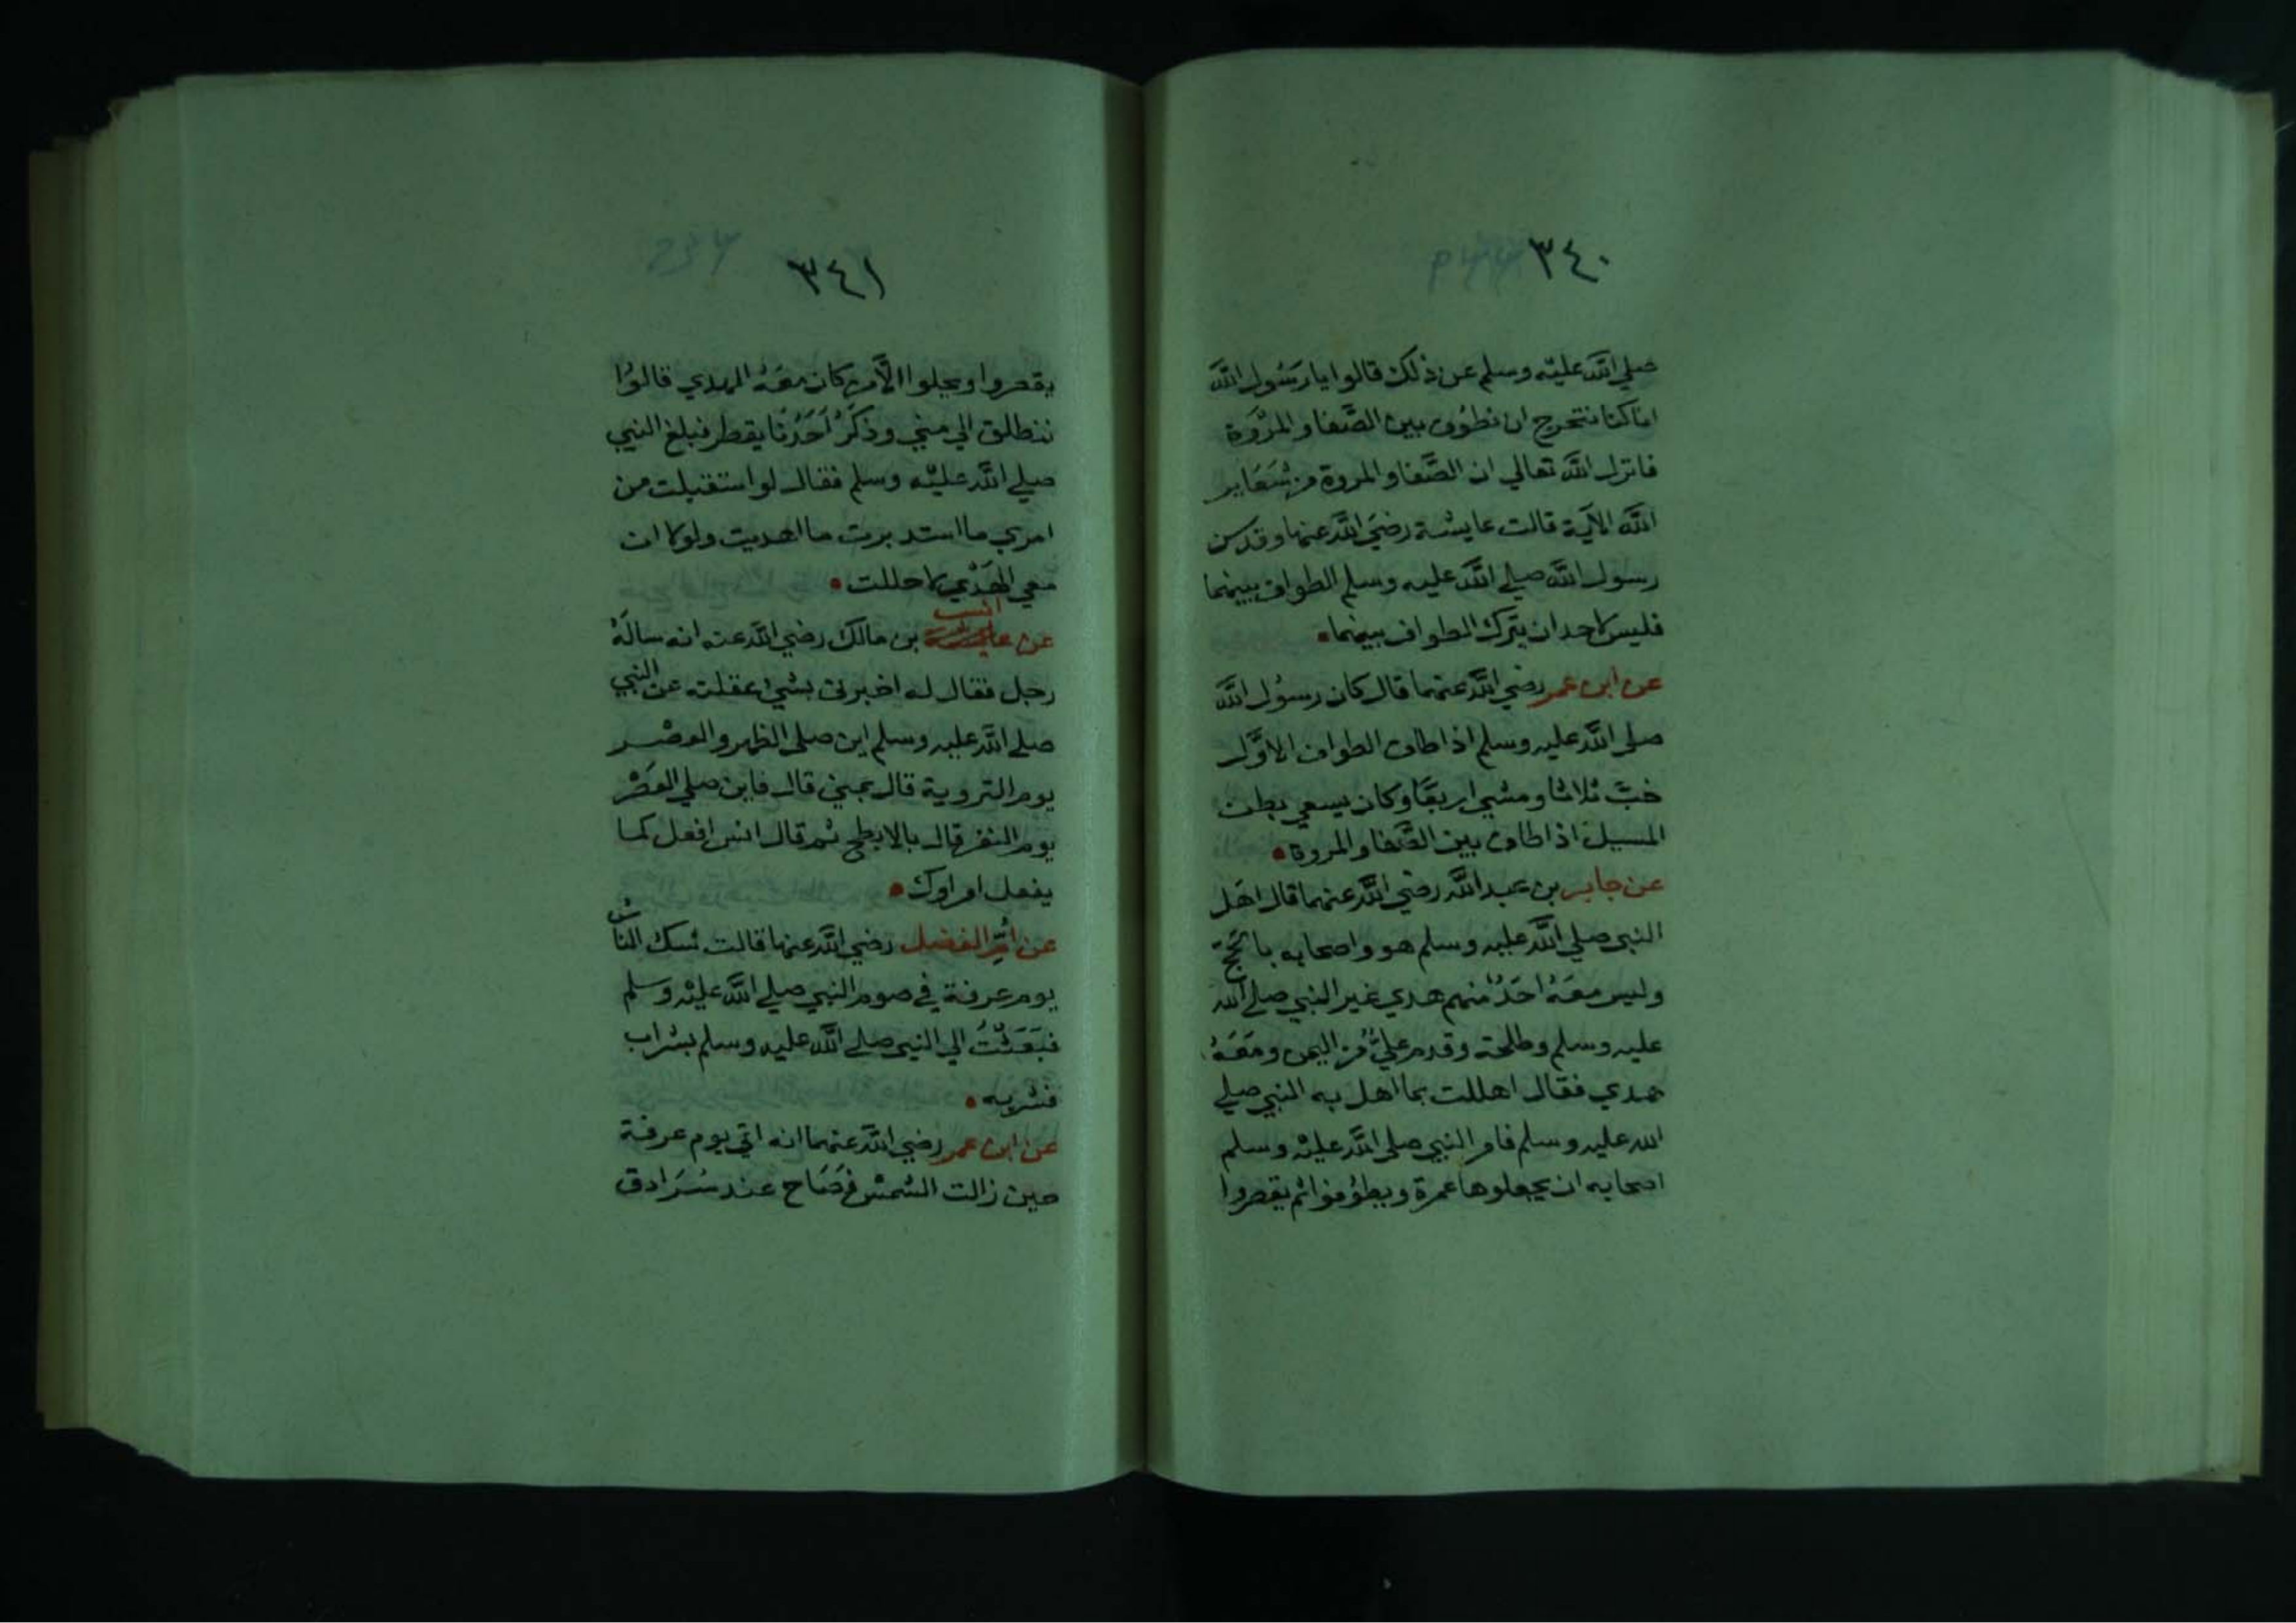 ٣٤٠
صلي الله عليه وسلم عن ذلك قالوا يا رسول الله
انا كنا نتحرج ان نطوف بين الصَّفا والمرْوَة
فانزل الله تعالي ان الصَّفا والمروة من شَعَاير
الله الآية قالت عايشة رضيَ الله عنها وقد سن
رسول الله صلي الله عليه وسلم الطواف بينهما
فليس لاحد ان يترك الطواف بينهما
عن ابن عمر رضي الله عنهما قال كان رسوُل الله
صلي الله عليه وسلم اذا طاف الطواف الاوَّل
خبَّ ثلاثا ومشي اربعًا وكان يسعي بطن
المسيل اذا طاف بين الصَّفا والمروة
عن جابر بن عبد الله رضي الله عنهما قال اهَل
النبي صلي الله عليه وسلم هو واصحابه بالحَجّ
وليس معَهُ احَدٌ منهم هدي غير النبي صلي الله
عليه وسلم وطلحة وقدم عليٌّ من اليمن ومَعَهُ
هدي فقال اهللت بما اهل به النبي صلي
الله عليه وسلم فامر النبي صلي الله عليْه وسلم
اصحابه ان يجعلوها عمرة ويطوُفوا ثم يقصروا
٣٤١
يقصروا ويحلوا الَّا من كان معَهُ الهدي قالوُا
ننطلق الي مني وذكَرُ اَحَدُنا يقطر فبلغ النبي
صلي الله عليْه وسلم فقال لو استقبلت من
امري ما استدبرت ما اهديت ولولا ان
معي الهَدْي لاحللت
انس
عن بن مالك رضي الله عنه انه سالَهُ
رجل فقال له اخبرني بشيء عقلته عن النبي
صلي الله عليه وسلم اين صلي الظهر والعصْر
يوم التروية قال بمني قال فاين صلي العَصْر
يوم النفر قال بالابطح ثم قال انس افعل كما
يفعل امراوك
عن اُمِّ الفضل رضي الله عنها قالت شك الناس
يوم عرفة في صوم النبي صلي الله عليْه وسلم
فبَعَثْتُ الي النبي صلي الله عليه وسلم بشراب
فشربه
عن ابن عمر رضي الله عنهما انه اتي يوم عرفة
حين زالت الشمْس فَصَاح عند سُرَادق